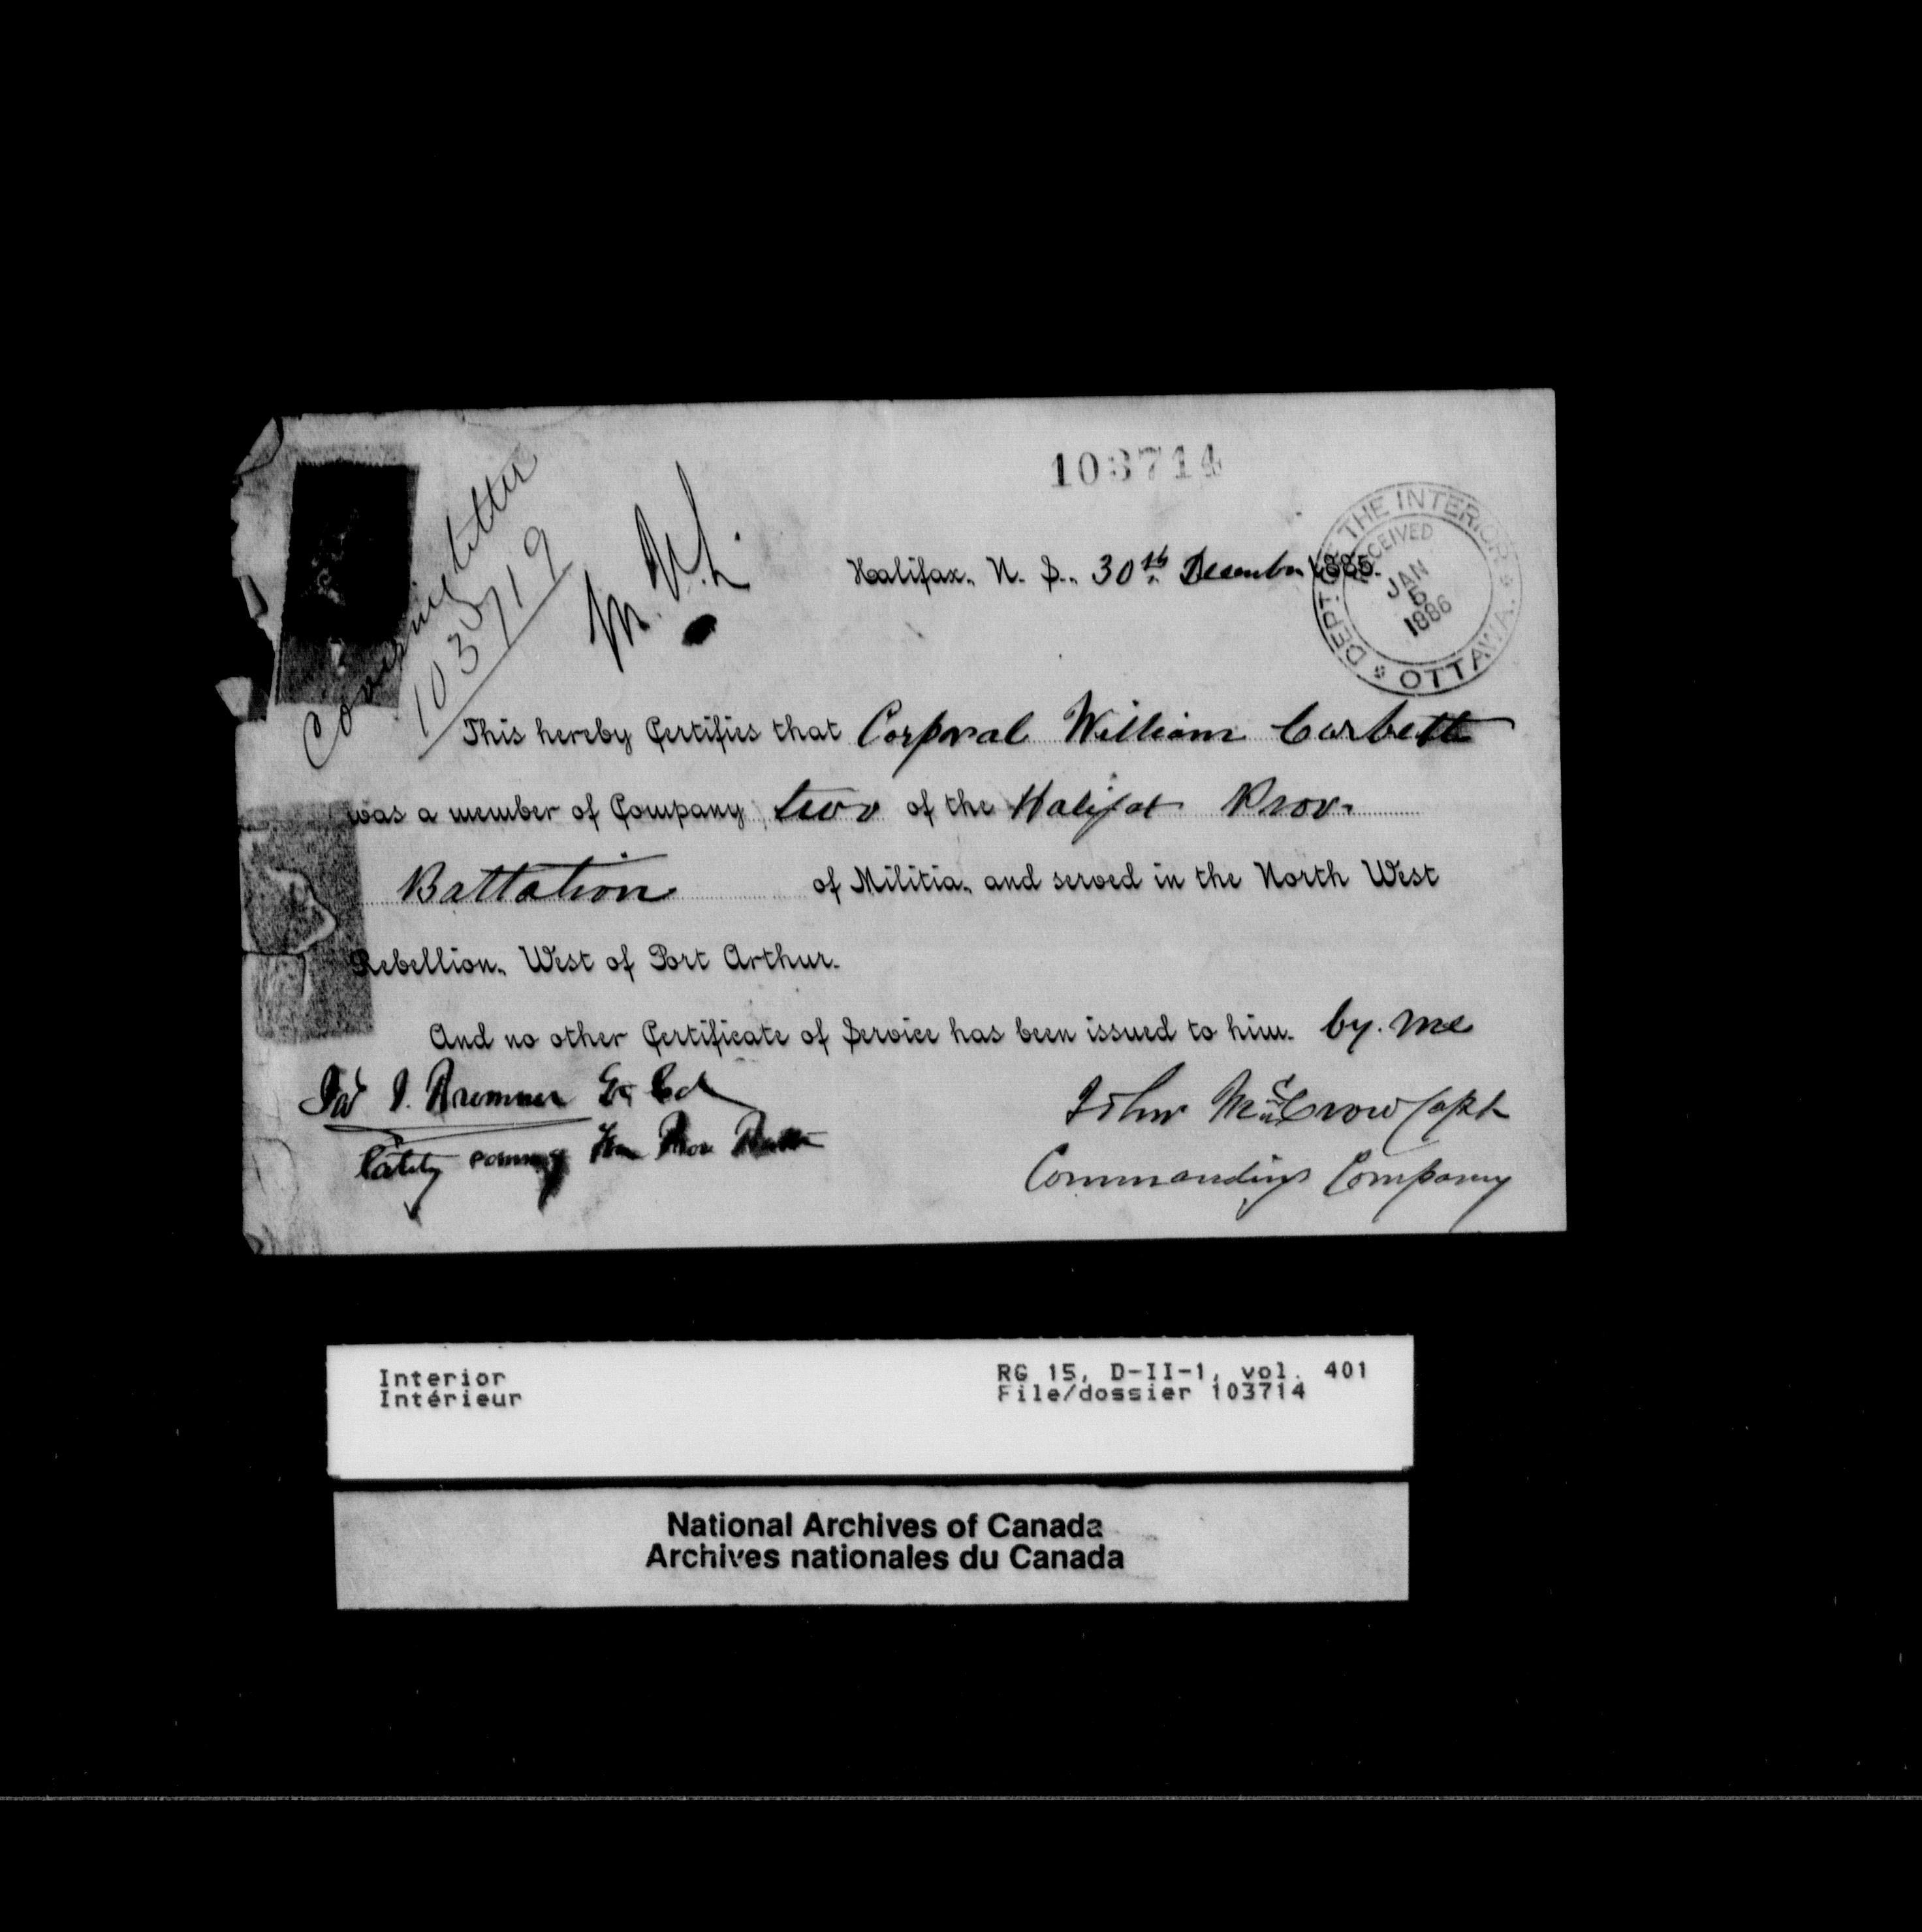 103714
Covering letter
103719
M. W. L.
DEPT. OF THE INTERIOR
RECEIVED
JAN
5
1886
OTTAWA.
Halifax, N. S., 30th December 1885.
This hereby Certifies that Corporal William Corbett
was a member of Company two of the Halifax Prov.
Battalion of Militia, and served in the North West
Rebellion, West of Port Arthur.
And no other Certificate of Service has been issued to him. by. me
Jas J. Bremner Lt Col
Lately comm'g Prov Batt
John McCrow Capt
Commanding Company
Interior
Intérieur
RG 15, D-II-1, vol. 401
File/dossier 103714
National Archives of Canada
Archives nationales du Canada